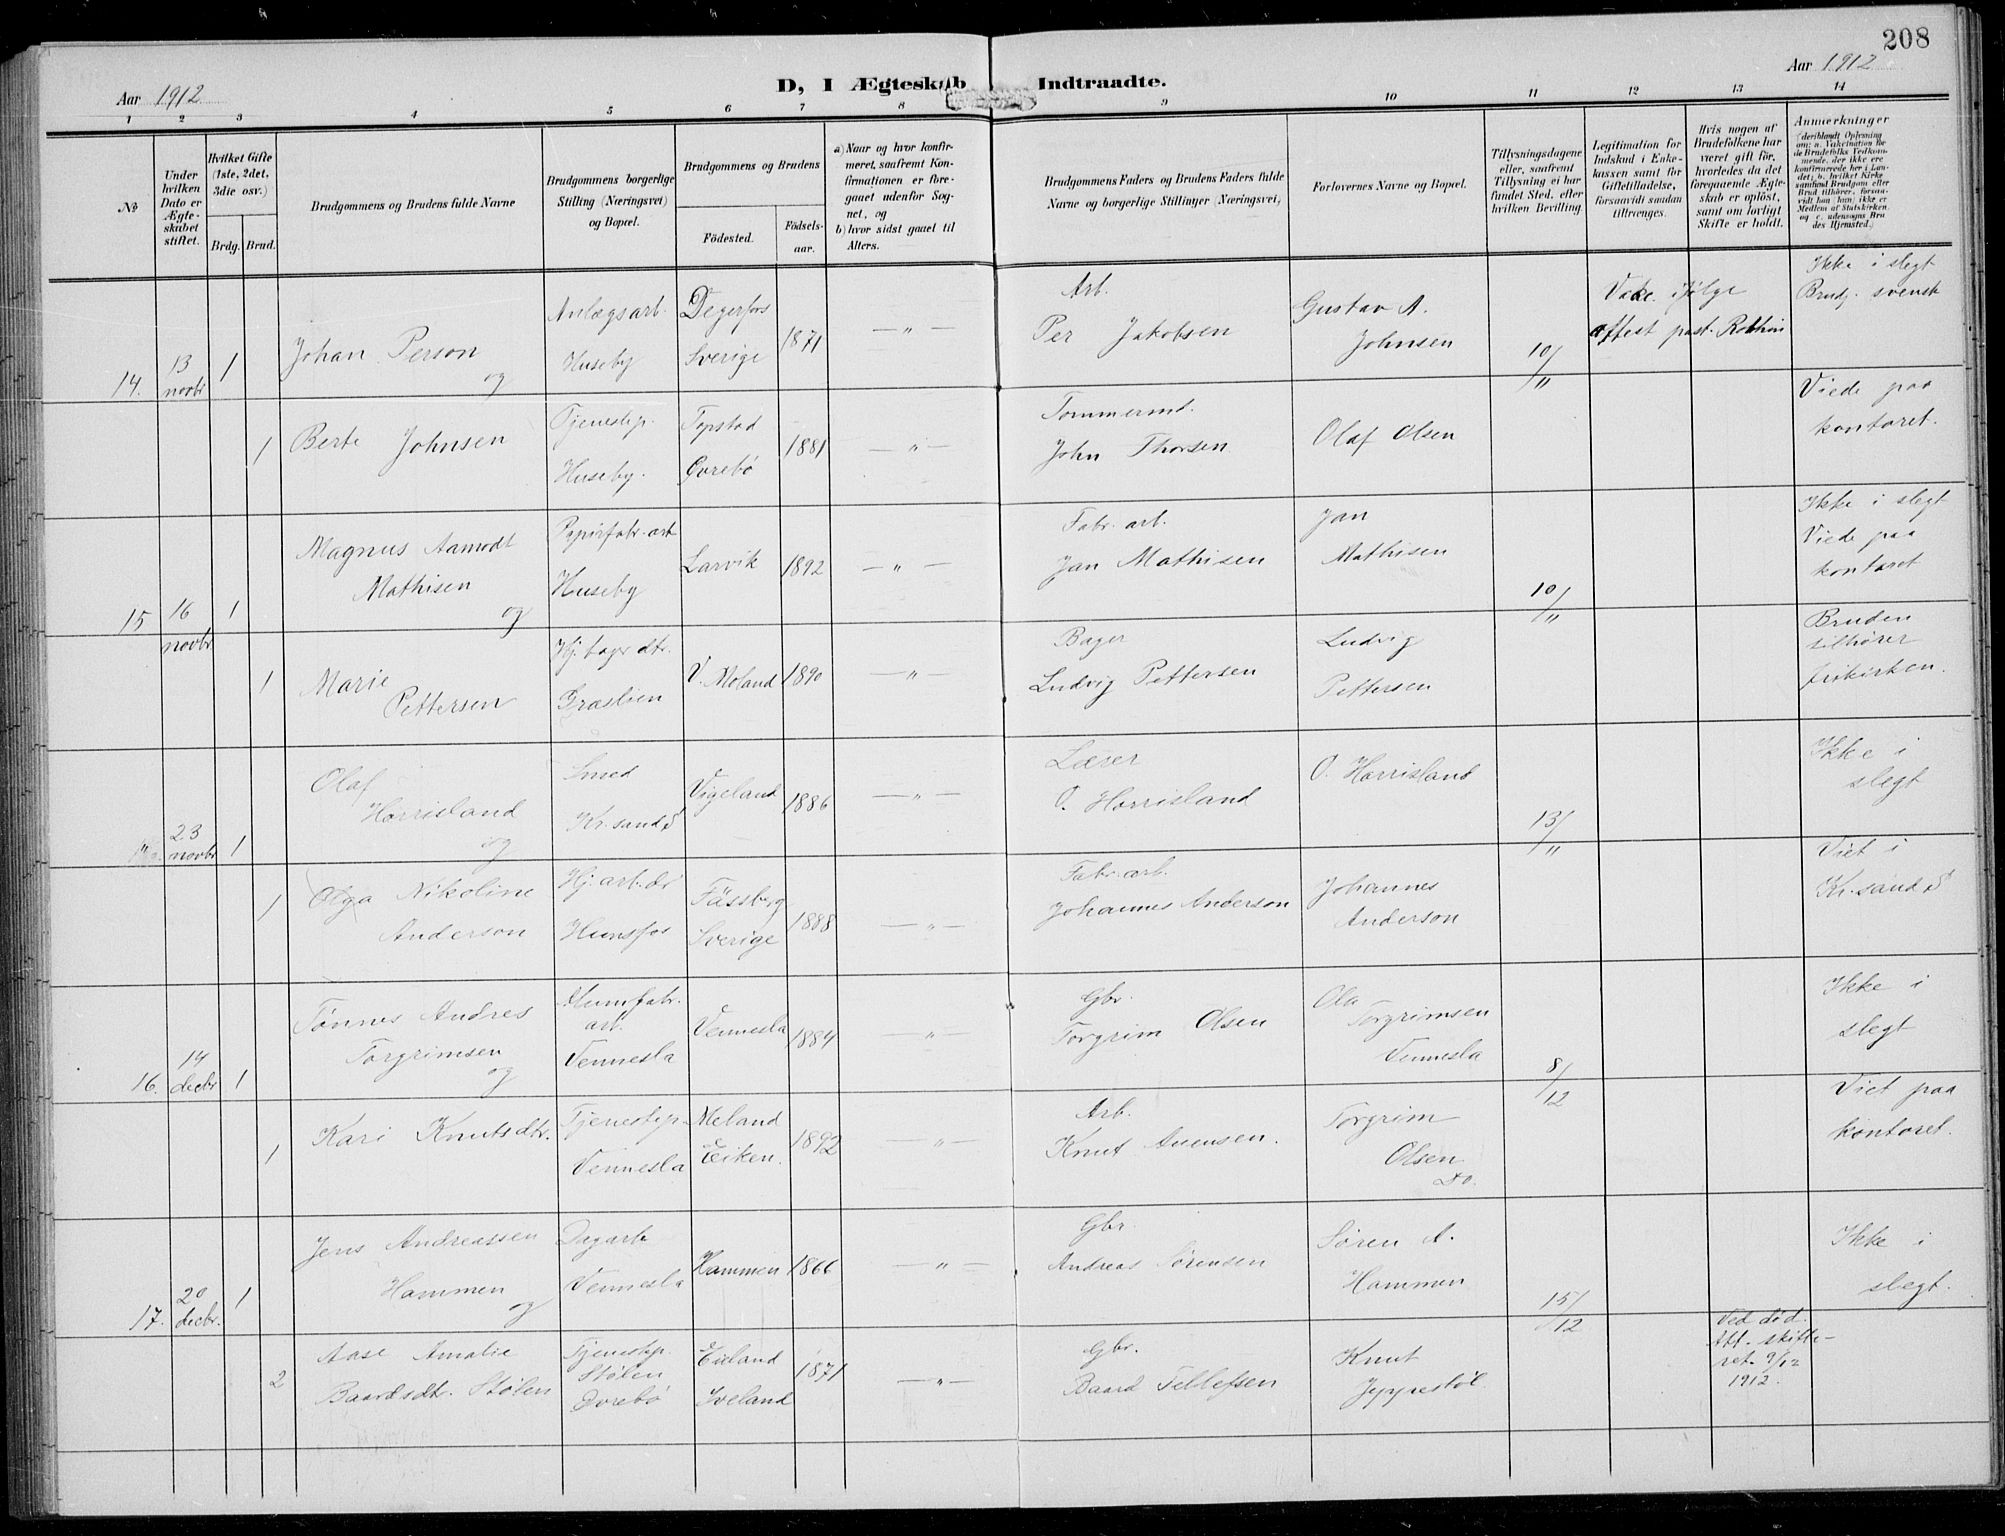 208
Aar 1912
D, I Ægteskab Indtraadte.
Aar 1912
1 2 3 4 5 6 7 8 9 10 11 12 13 14
No
Under hvilken Dato er Ægteskabet stiftet.
Hvilket Gifte (1ste, 2det, 3die osv.)
Brdg. Brud.
Brudgommens og Brudens fulde Navne
Brudgommens borgerlige Stilling (Næringsvei) og Bopæl.
Brudgommens og Brudens
Födested.
Födselsaar.
a) Naar og hvor konfirmeret, saafremt Konfirmationen er foregaaet udenfor Sognet, og
b) hvor sidst gaaet til Alters.
Brudgommens Faders og Brudens Faders fulde Navne og borgerlige Stillinger (Næringsvei)
Forlovernes Navne og Bopæl.
Tillysningsdagene eller, saafremt Tillysning ei har fundet Sted, efter hvilken Bevilling.
Legitimation for Indskud i Enkekassen samt for Giftetilladelse, forsaavidt saadan tiltrænges.
Hvis nogen af Brudefolkene har været gift før, hvorledes da det foregaaende Ægteskab er opløst, samt om lovligt Skifte er holdt.
Anmerkninger
(deriblandt Oplysning om: a. Vakcination for de Brudefolks Vedkommende, der ikke ere konfirmerede her i Landet; b. hvilket Kirkesamfund Brudgom eller Brud tilhører, forsaavidt han (hun) ikke er Medlem af Statskirken, og c. udensogns Brudes Hjemsted.)
14. 13 novbr 1 Johan Person og Anlægsarb. Huseby Degerfors Sverige 1871 — „ — Arb. Per Jakobsen Gustav A. Johnsen 10/11 Vakc. ifølge attest past. Ikke i slegt Brudg. svensk
1 Berte Johnsen Tjenestep. Huseby. Topstad Øvrebø 1881 — „ — Tømmermd. John Thorsen Olaf Olsen Viede paa kontoret.
15 16 novbr 1 Magnus Aamodt Mathisen og Papirfabr. arb Huseby Larvik 1892 — „ — Fabr. arb. Jan Mathisen Jan Mathisen 10/11 Ikke i slegt Viede paa kontoret
1 Marie Pettersen Hj. bager dtr. Graslien V. Moland 1890 — „ — Bager Ludvig Pettersen Ludvig Pettersen Bruden tilhører frikirken.
23 novbr 1 Olaf Harrisland og Smed Kr.sand S Vigeland 1886 — „ — Læser O. Harrisland O. Harrisland 13/11 Ikke i slegt
1 Olga Nikoline Anderson Hj. arb. dr Hunsfos Fässberg Sverige 1888 — „ — Fabr. arb. Johannes Anderson Johannes Anderson Viet i Kr.sand S
16. 14 decbr 1 Tønnes Andres Torgrimsen og arb. Vennesla Vennesla 1884 — „ — Gbr. Torgrim Olsen Ola Torgrimsen Vennesla 8/12 Ikke i slegt
1 Kari Knutsdtr. Tjenestep. Vennesla Meland Eiken. 1892 — „ — Arb. Knut Aanensen. Torgrim Olsen Do. Viet paa kontoret.
17. 20 decbr. 1 Jens Andreassen Hammen og Dagarb Vennesla Hammen 1866 — „ — Gbr. Andreas Sørensen Søren A. Hammen 15/12 Ikke i slegt.
2 Aase Amalie Baardsdt. Stølen Tjenestep. Stølen Øvrebø Eieland Iveland 1871 — „ — Gbr. Baard Tellefsen Knut Jeppestøl Ved død. Att. skifteret. 9/12 1912.